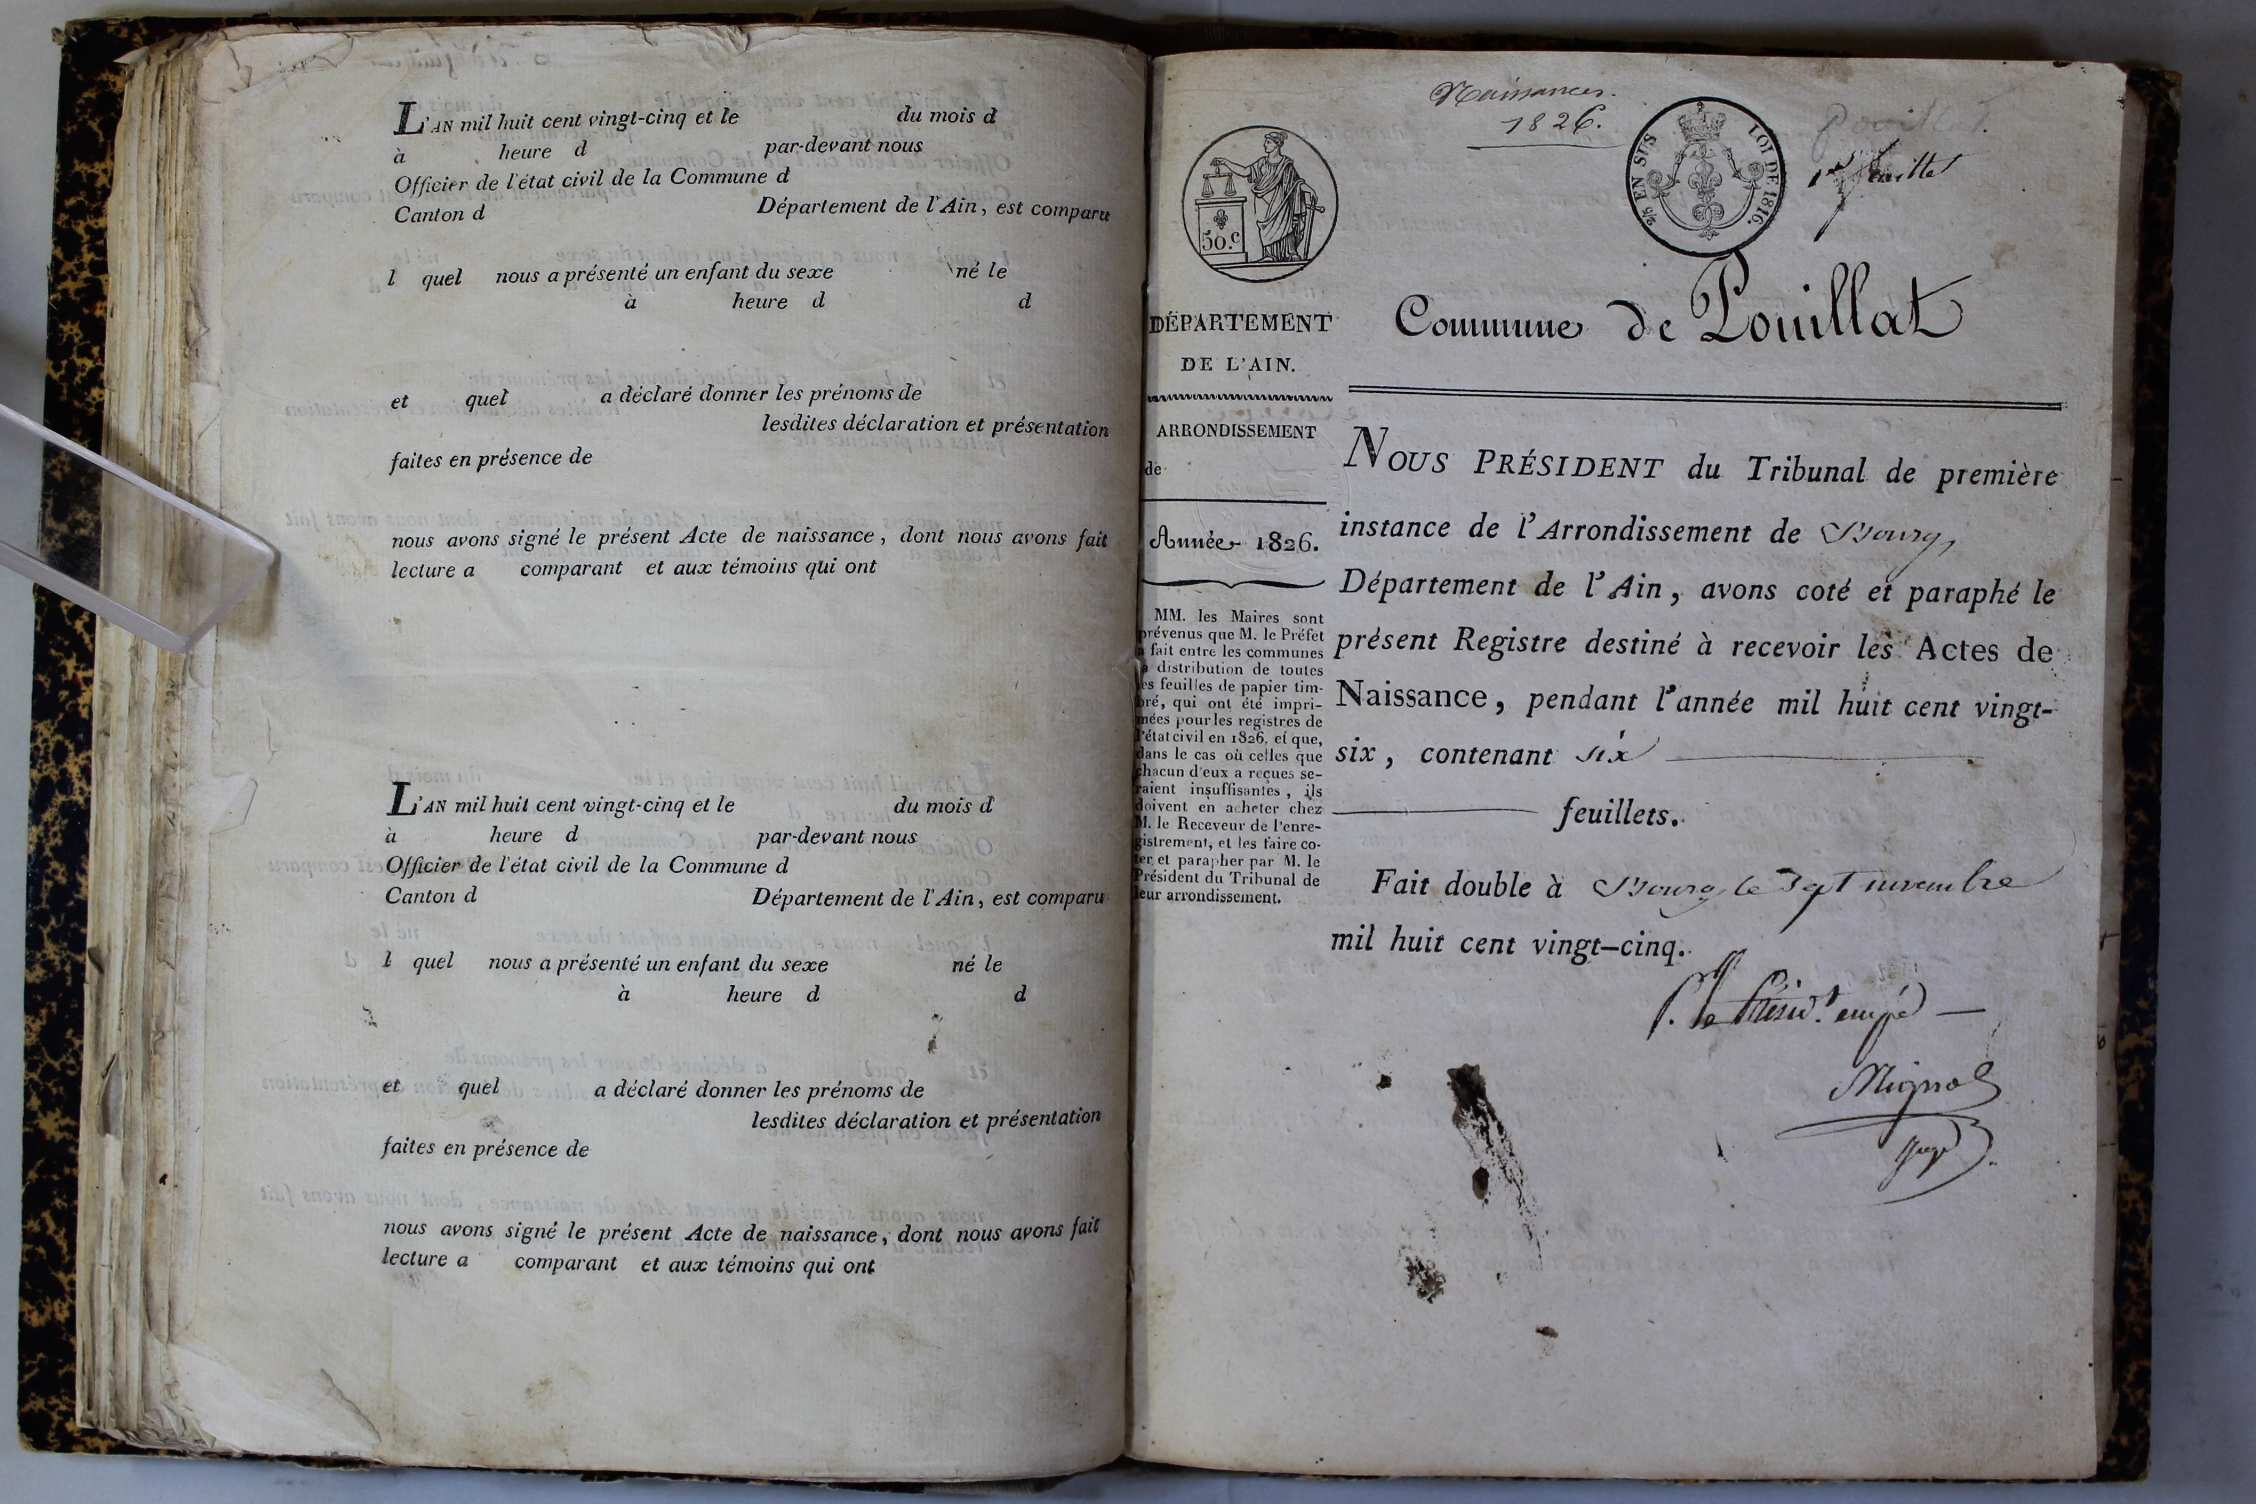 L'AN mil huit cent vingt-cinq et le du mois d
à heure d par-devant nous
Officier de l'état civil de la Commune d
Canton d Département de l'Ain, est comparu
l quel nous a présenté un enfant du sexe né le
à heure d d
et quel a déclaré donner les prénoms de
lesdites déclaration et présentation
faites en présence de
nous avons signé le présent Acte de naissance, dont nous avons fait
lecture a comparant et aux témoins qui ont
L'AN mil huit cent vingt-cinq et le du mois d
à heure d par-devant nous
Officier de l'état civil de la Commune d
Canton d Département de l'Ain, est comparu
l quel nous a présenté un enfant du sexe né le
à heure d d
et quel a déclaré donner les prénoms de
lesdites déclaration et présentation
faites en présence de
nous avons signé le présent Acte de naissance, dont nous avons fait
lecture a comparant et aux témoins qui ont
Naissances.
1826.
50.c
EN SUS LOI DE 1816.
Pouillat
1er feuillet
DÉPARTEMENT
DE L'AIN.
ARRONDISSEMENT
de
Année 1826.
MM. les Maires sont
prévenus que M. le Préfet
a fait entre les communes
la distribution de toutes
les feuilles de papier tim-
bré, qui ont été impri-
mées pour les registres de
l'état civil en 1826, et que,
dans le cas où celles que
chacun d'eux a reçues se-
raient insuffisantes, ils
doivent en acheter chez
M. le Receveur de l'enre-
gistrement, et les faire co-
ter et parapher par M. le
Président du Tribunal de
leur arrondissement.
Commune de Pouillat
NOUS PRÉSIDENT du Tribunal de première
instance de l'Arrondissement de Bourg,
Département de l'Ain, avons coté et paraphé le
présent Registre destiné à recevoir les Actes de
Naissance, pendant l'année mil huit cent vingt-
six, contenant six
feuillets.
Fait double à Bourg, le sept novembre
mil huit cent vingt-cinq.
P. le Présid.t empé
Mignot
Juge